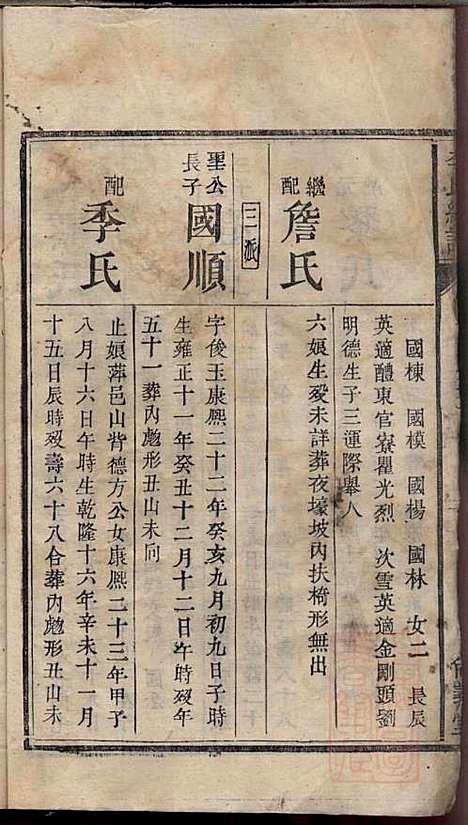 國棟 國模 國楊 國林 女二 長辰
英適醴東官寮瞿光烈 次雪英適金剛頭劉
明德生子三運際舉人
繼配 詹氏
六娘生歿未詳葬夜壕坡內扶椅形無出
三派
聖公長子 國順
字俊玉康熙二十二年癸亥九月初九日子時
生雍正十一年癸丑十二月十二日午時歿年
五十一葬內虎形丑山未向
配 季氏
止娘萍邑山背德方公女康熙二十三年甲子
八月十六日午時生乾隆十六年辛未十一月
十五日辰時歿壽六十八合葬內虎形丑山未